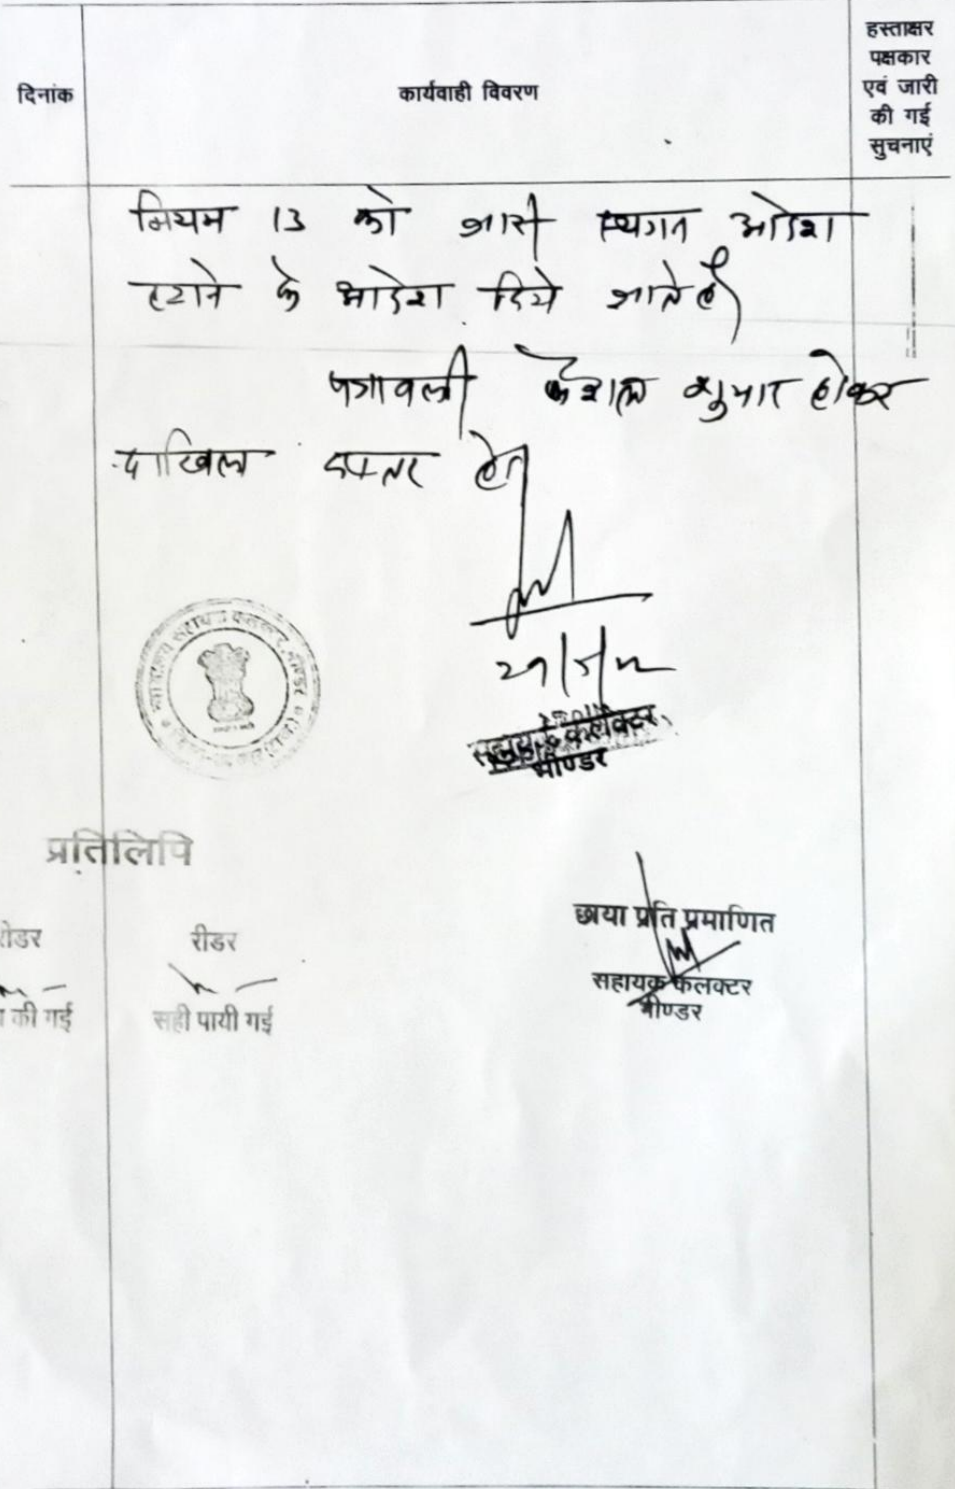 दिनांक
कार्यवाही विवरण
हस्ताक्षर
पक्षकार
एवं जारी
की गई
सुचनाएं
नियम 13 को जारी स्थगत आदेश
हटाने के आदेश दिये जाते है
पत्रावली फैशल शुमार होकर
दाखिल दफ्तर हो
सहायक कलेक्टर
भीण्डर
प्रतिलिपि
रीडर
की गई
रीडर
सही पायी गई
छाया प्रति प्रमाणित
सहायक कलक्टर
भीण्डर